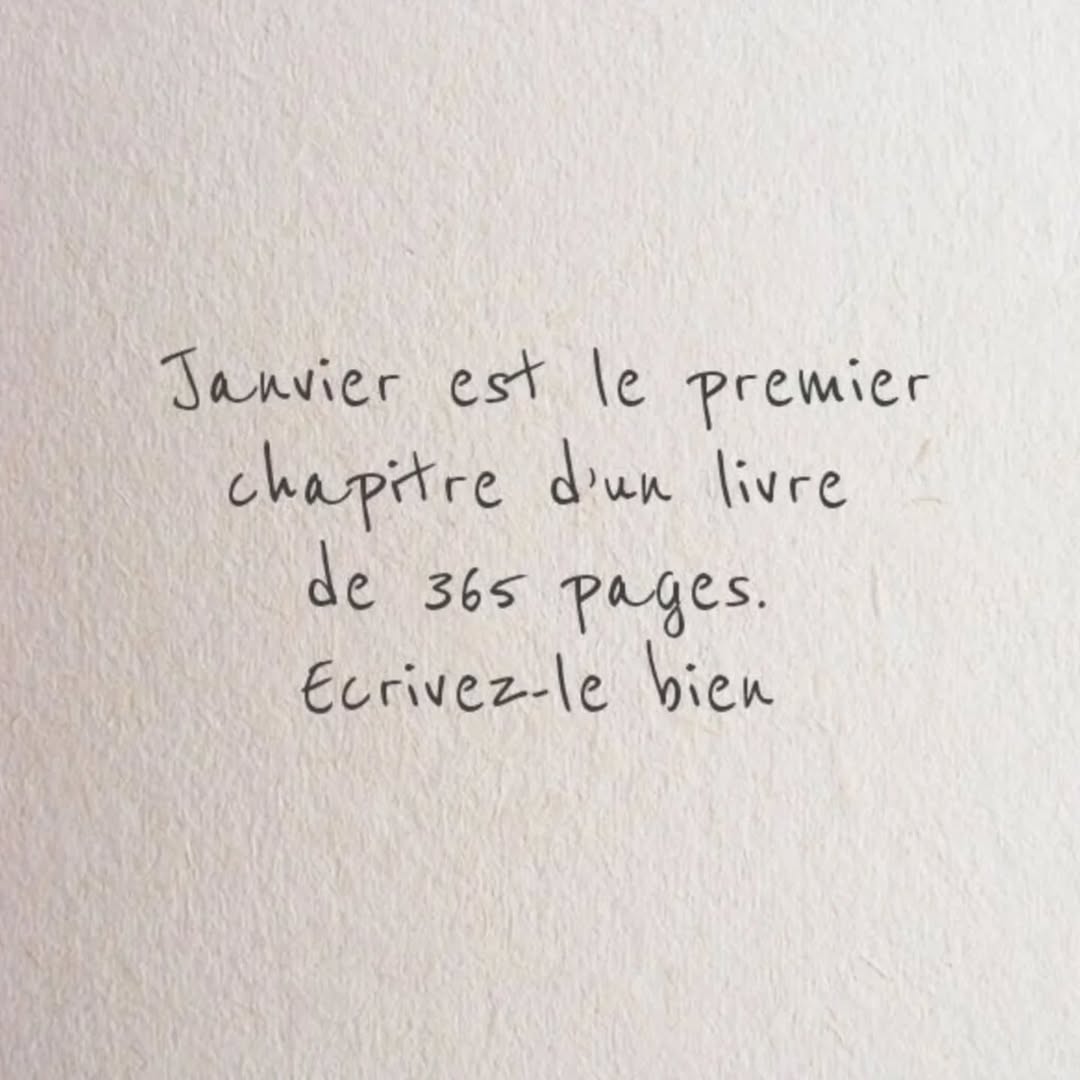 Janvier est le premier
chapitre d'un livre
de 365 pages.
Ecrivez-le bien